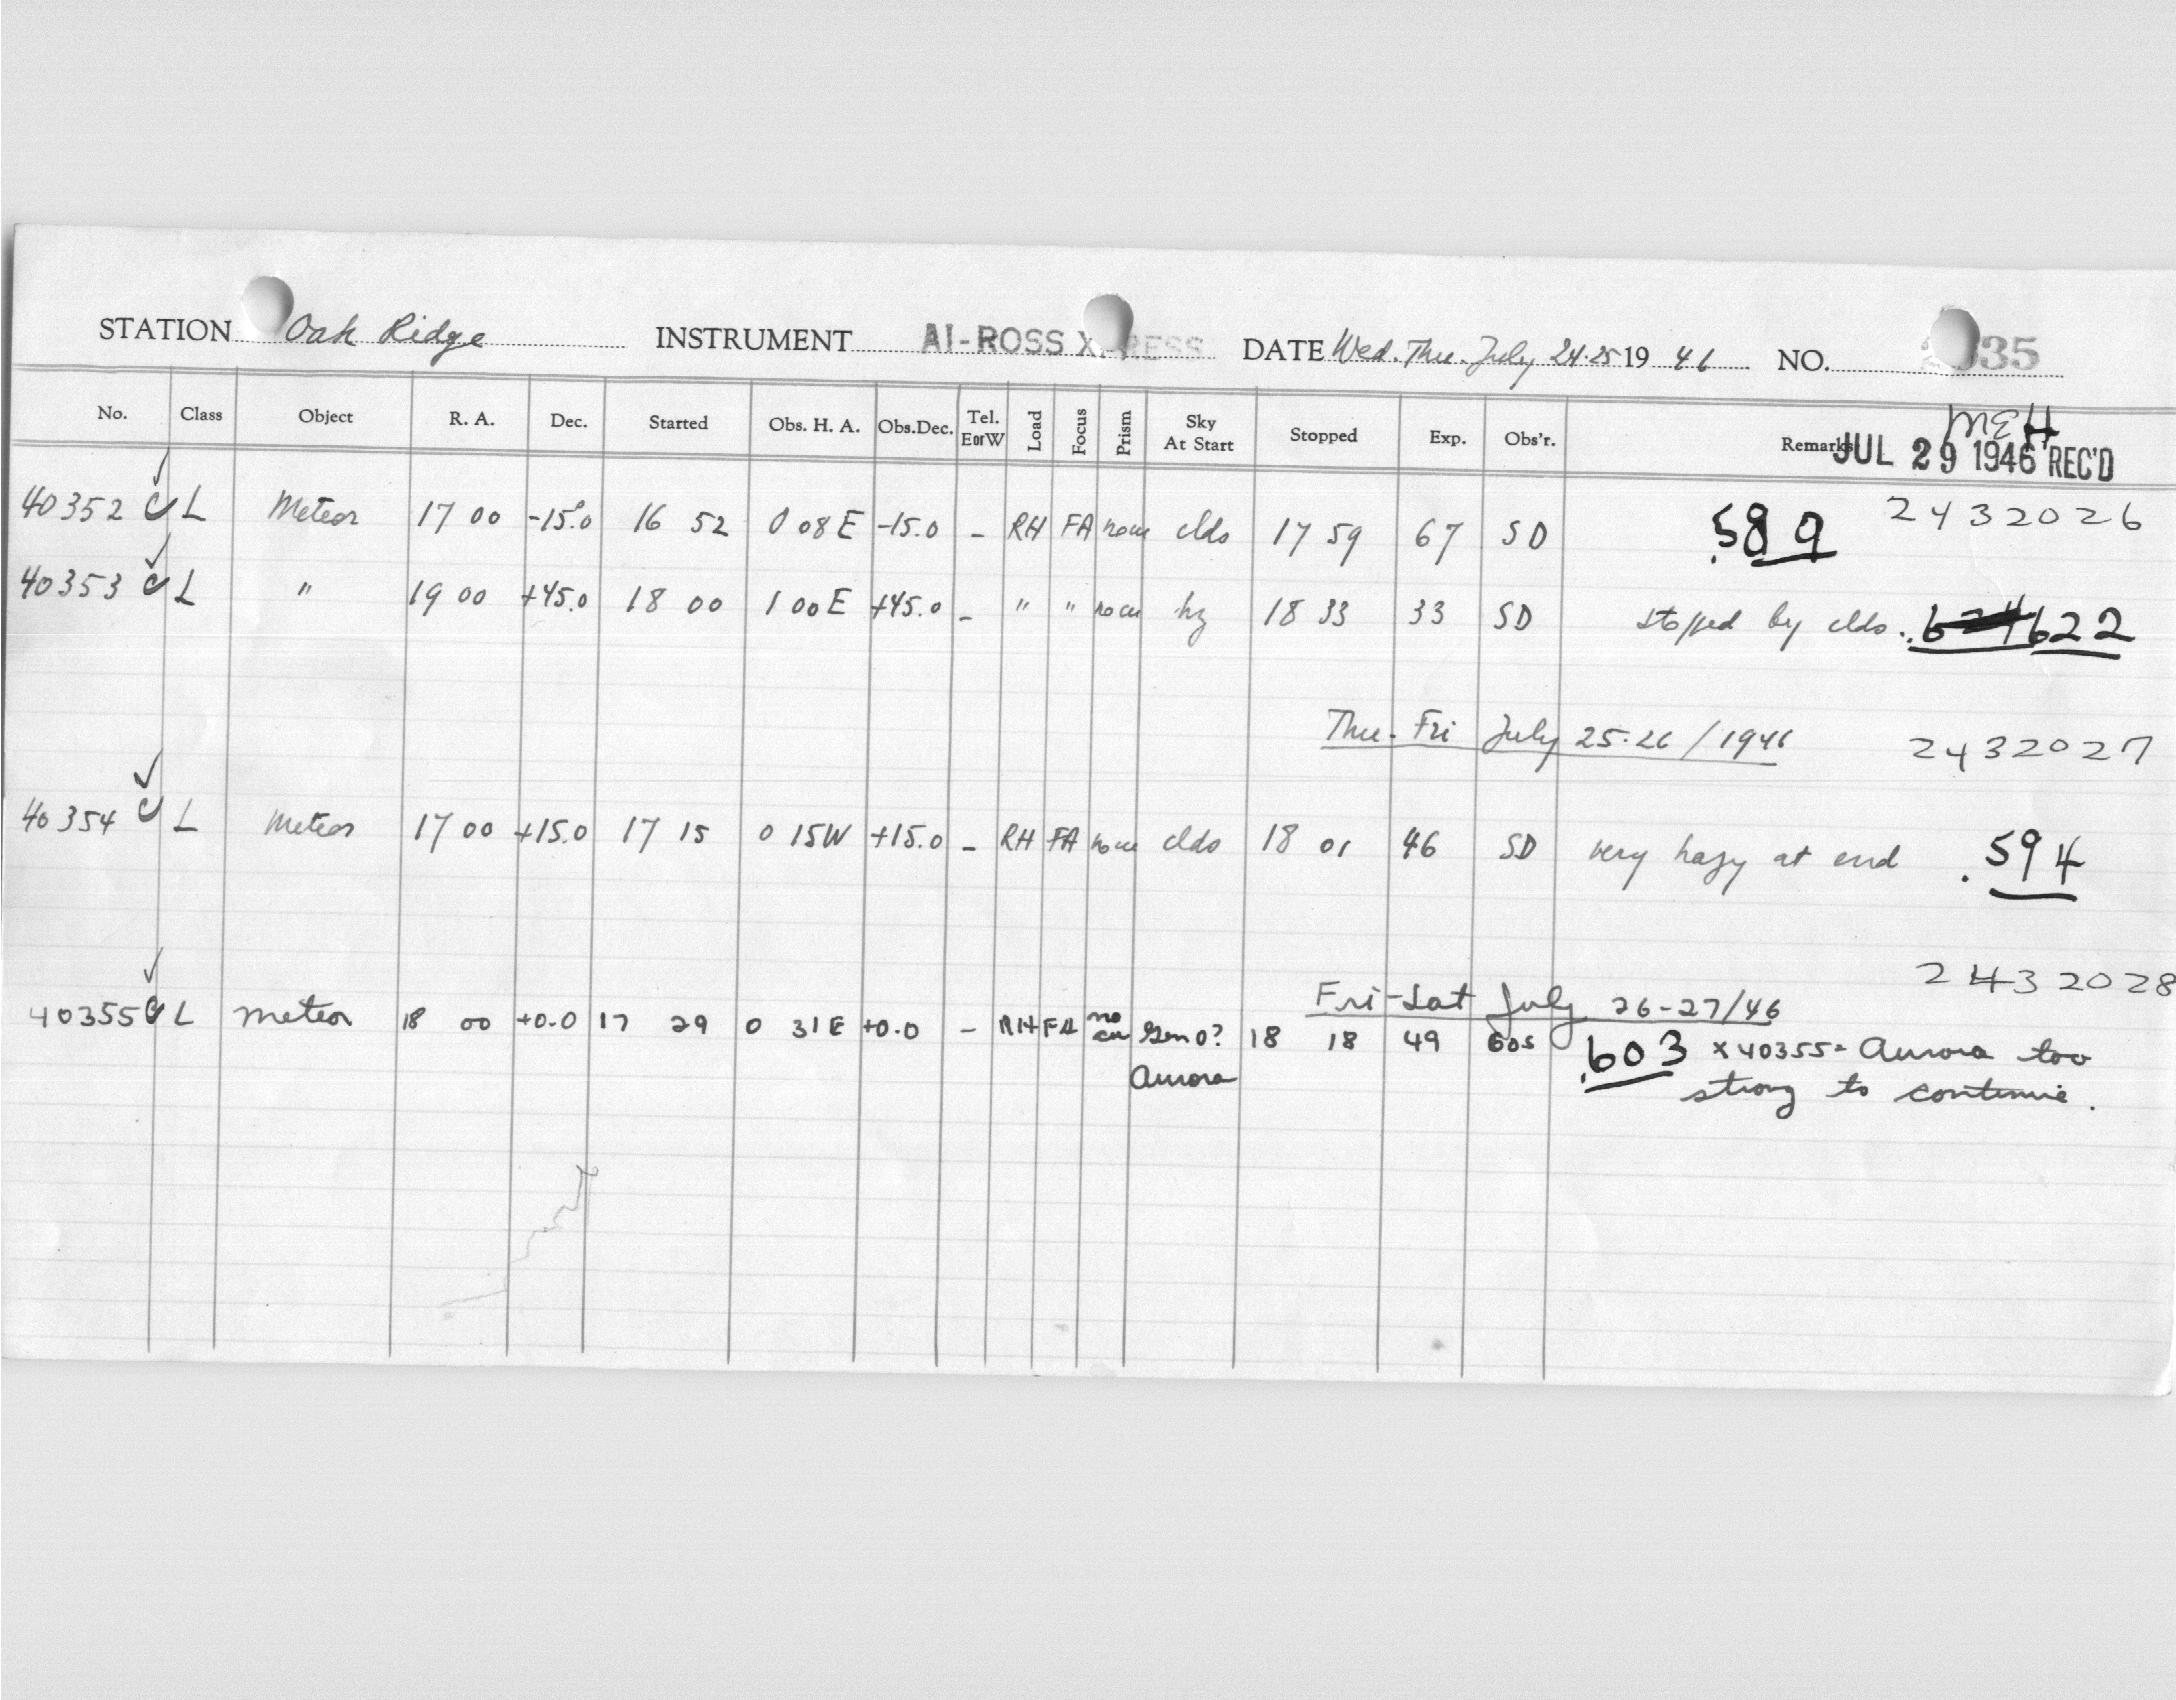 STATION Oak Ridge INSTRUMENT AI-ROSS DATE Wed. Thu. July 24-25 19 46 NO. 35
No. Class Object R. A. Dec. Started Obs. H. A. Obs.Dec. Tel. E or W Load Focus Prism Sky At Start Stopped Exp. Obs'r. Remarks MEH
JUL 29 1946 REC'D
40352 ✓ C L Meteor 17 00 -15.0 16 52 0 08 E -15.0 - RH FA none clds 17 59 67 SD .589 2432026
40353 ✓ C L " 19 00 +45.0 18 00 1 00 E +45.0 - " " none hz 18 33 33 SD stopped by clds. .622
Thu. Fri July 25-26/1946 2432027
40354 ✓ C L Meteor 17 00 +15.0 17 15 0 15 W +15.0 - RH FA none clds 18 01 46 SD very hazy at end .594
Fri-Sat July 26-27/46 2432028
40355 ✓ C L meteor 18 00 +0.0 17 29 0 31 E +0.0 - RH FA 0? 18 18 49 .603 x40355 = Aurora too
Aurora strong to continue.